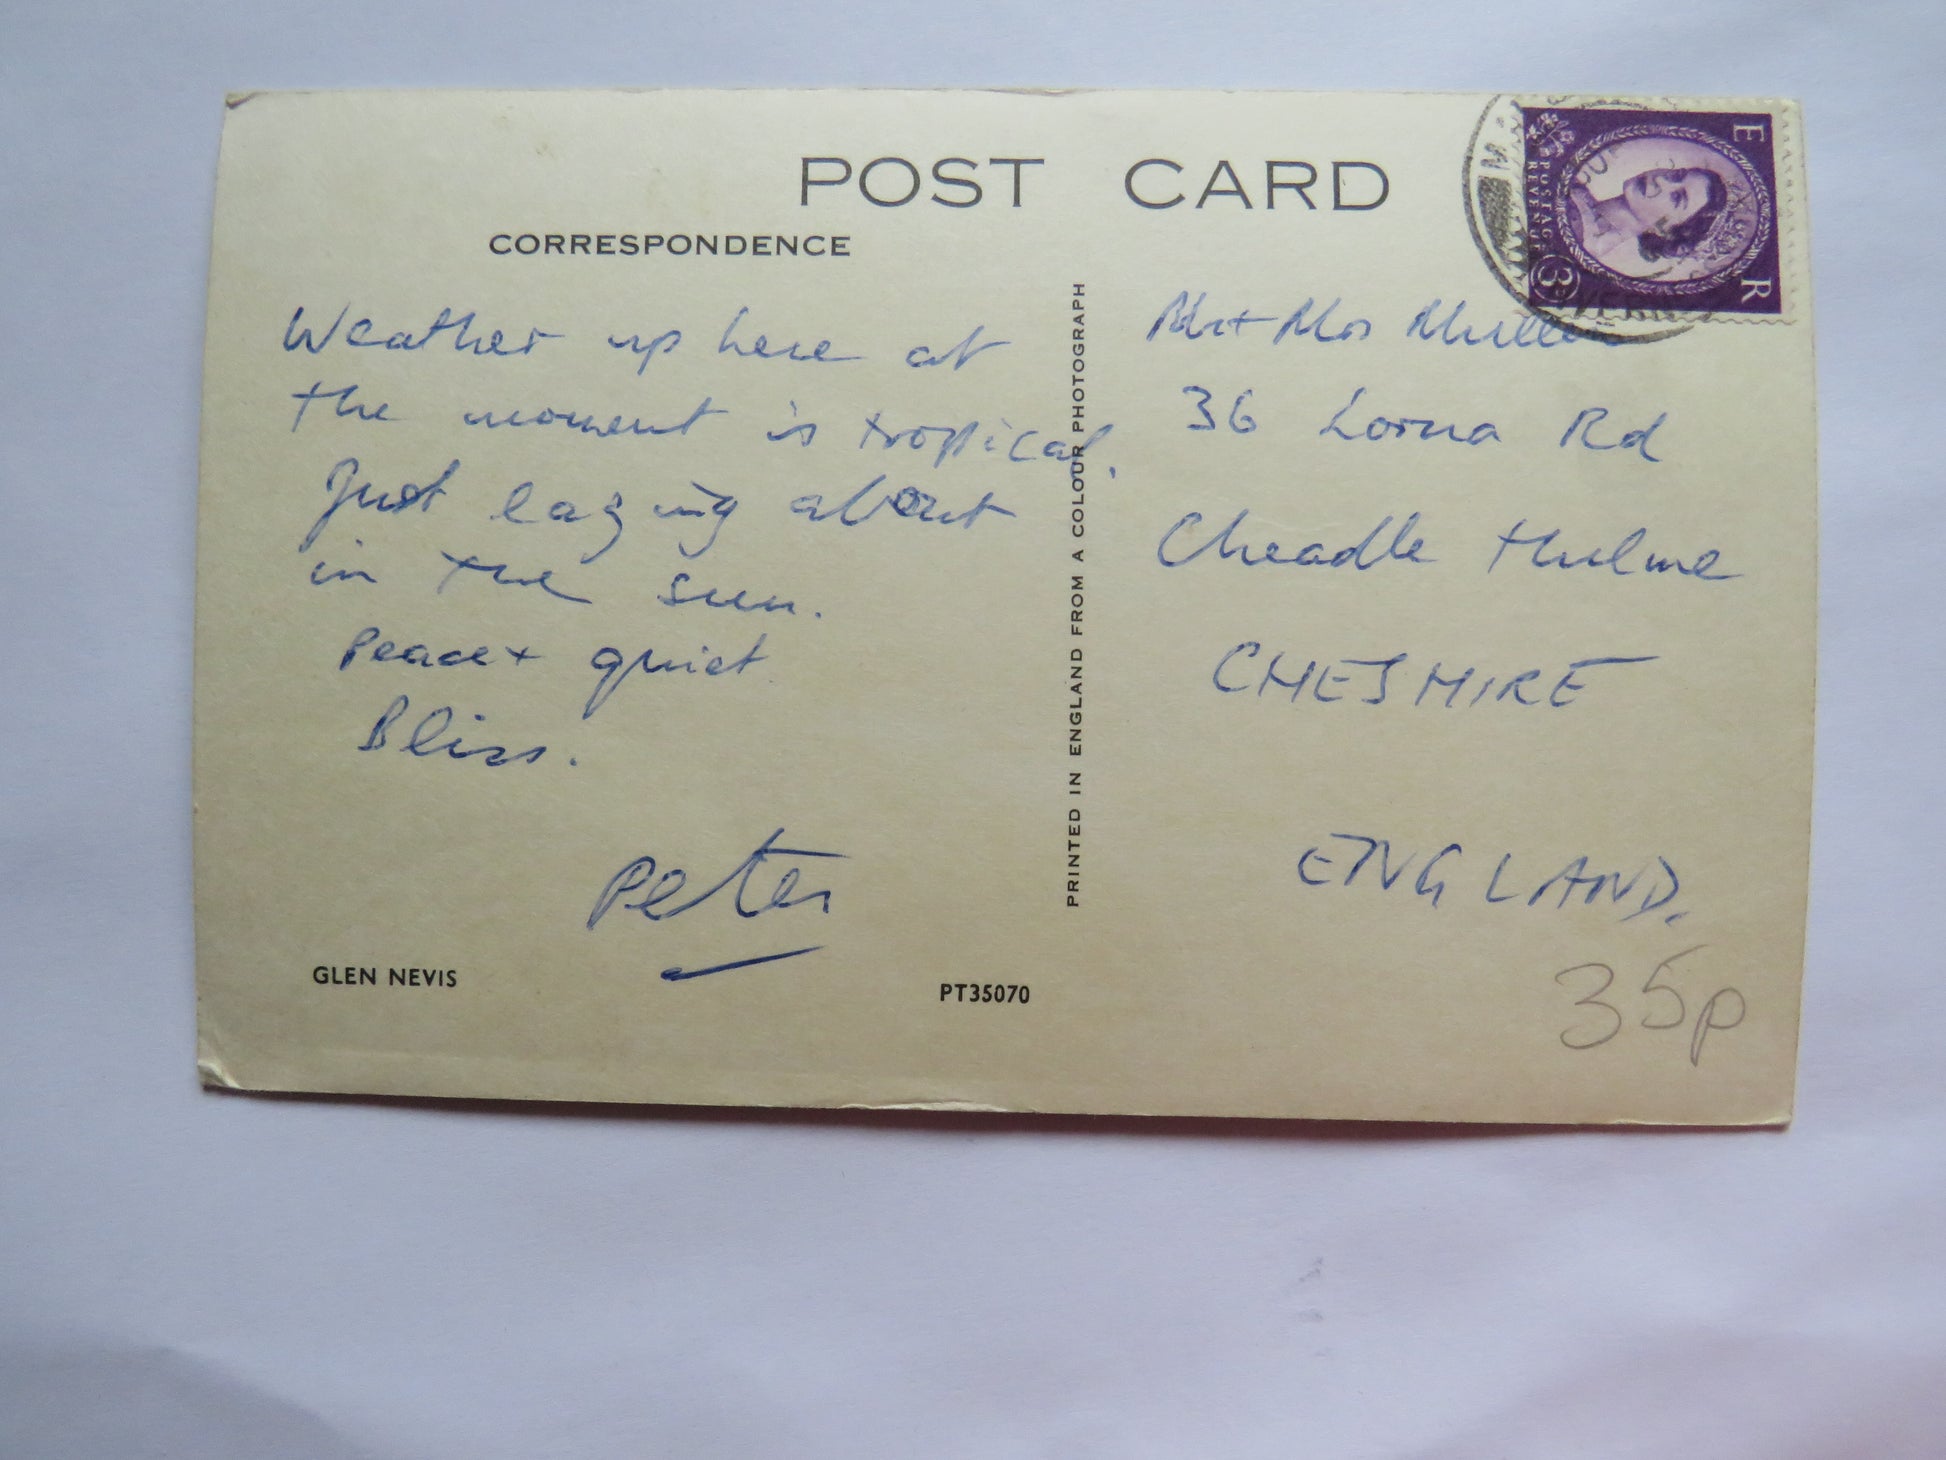 POST CARD
CORRESPONDENCE
Weather up here at
the moment is tropical.
Just lazing about
in the sun.
Peace + quiet
Bliss.
Peter
GLEN NEVIS
PT35070
PRINTED IN ENGLAND FROM A COLOUR PHOTOGRAPH
E R
POSTAGE
REVENUE
3
Mr + Mrs
36 Lorna Rd
Cheadle Hulme
CHESHIRE
ENGLAND.
35p